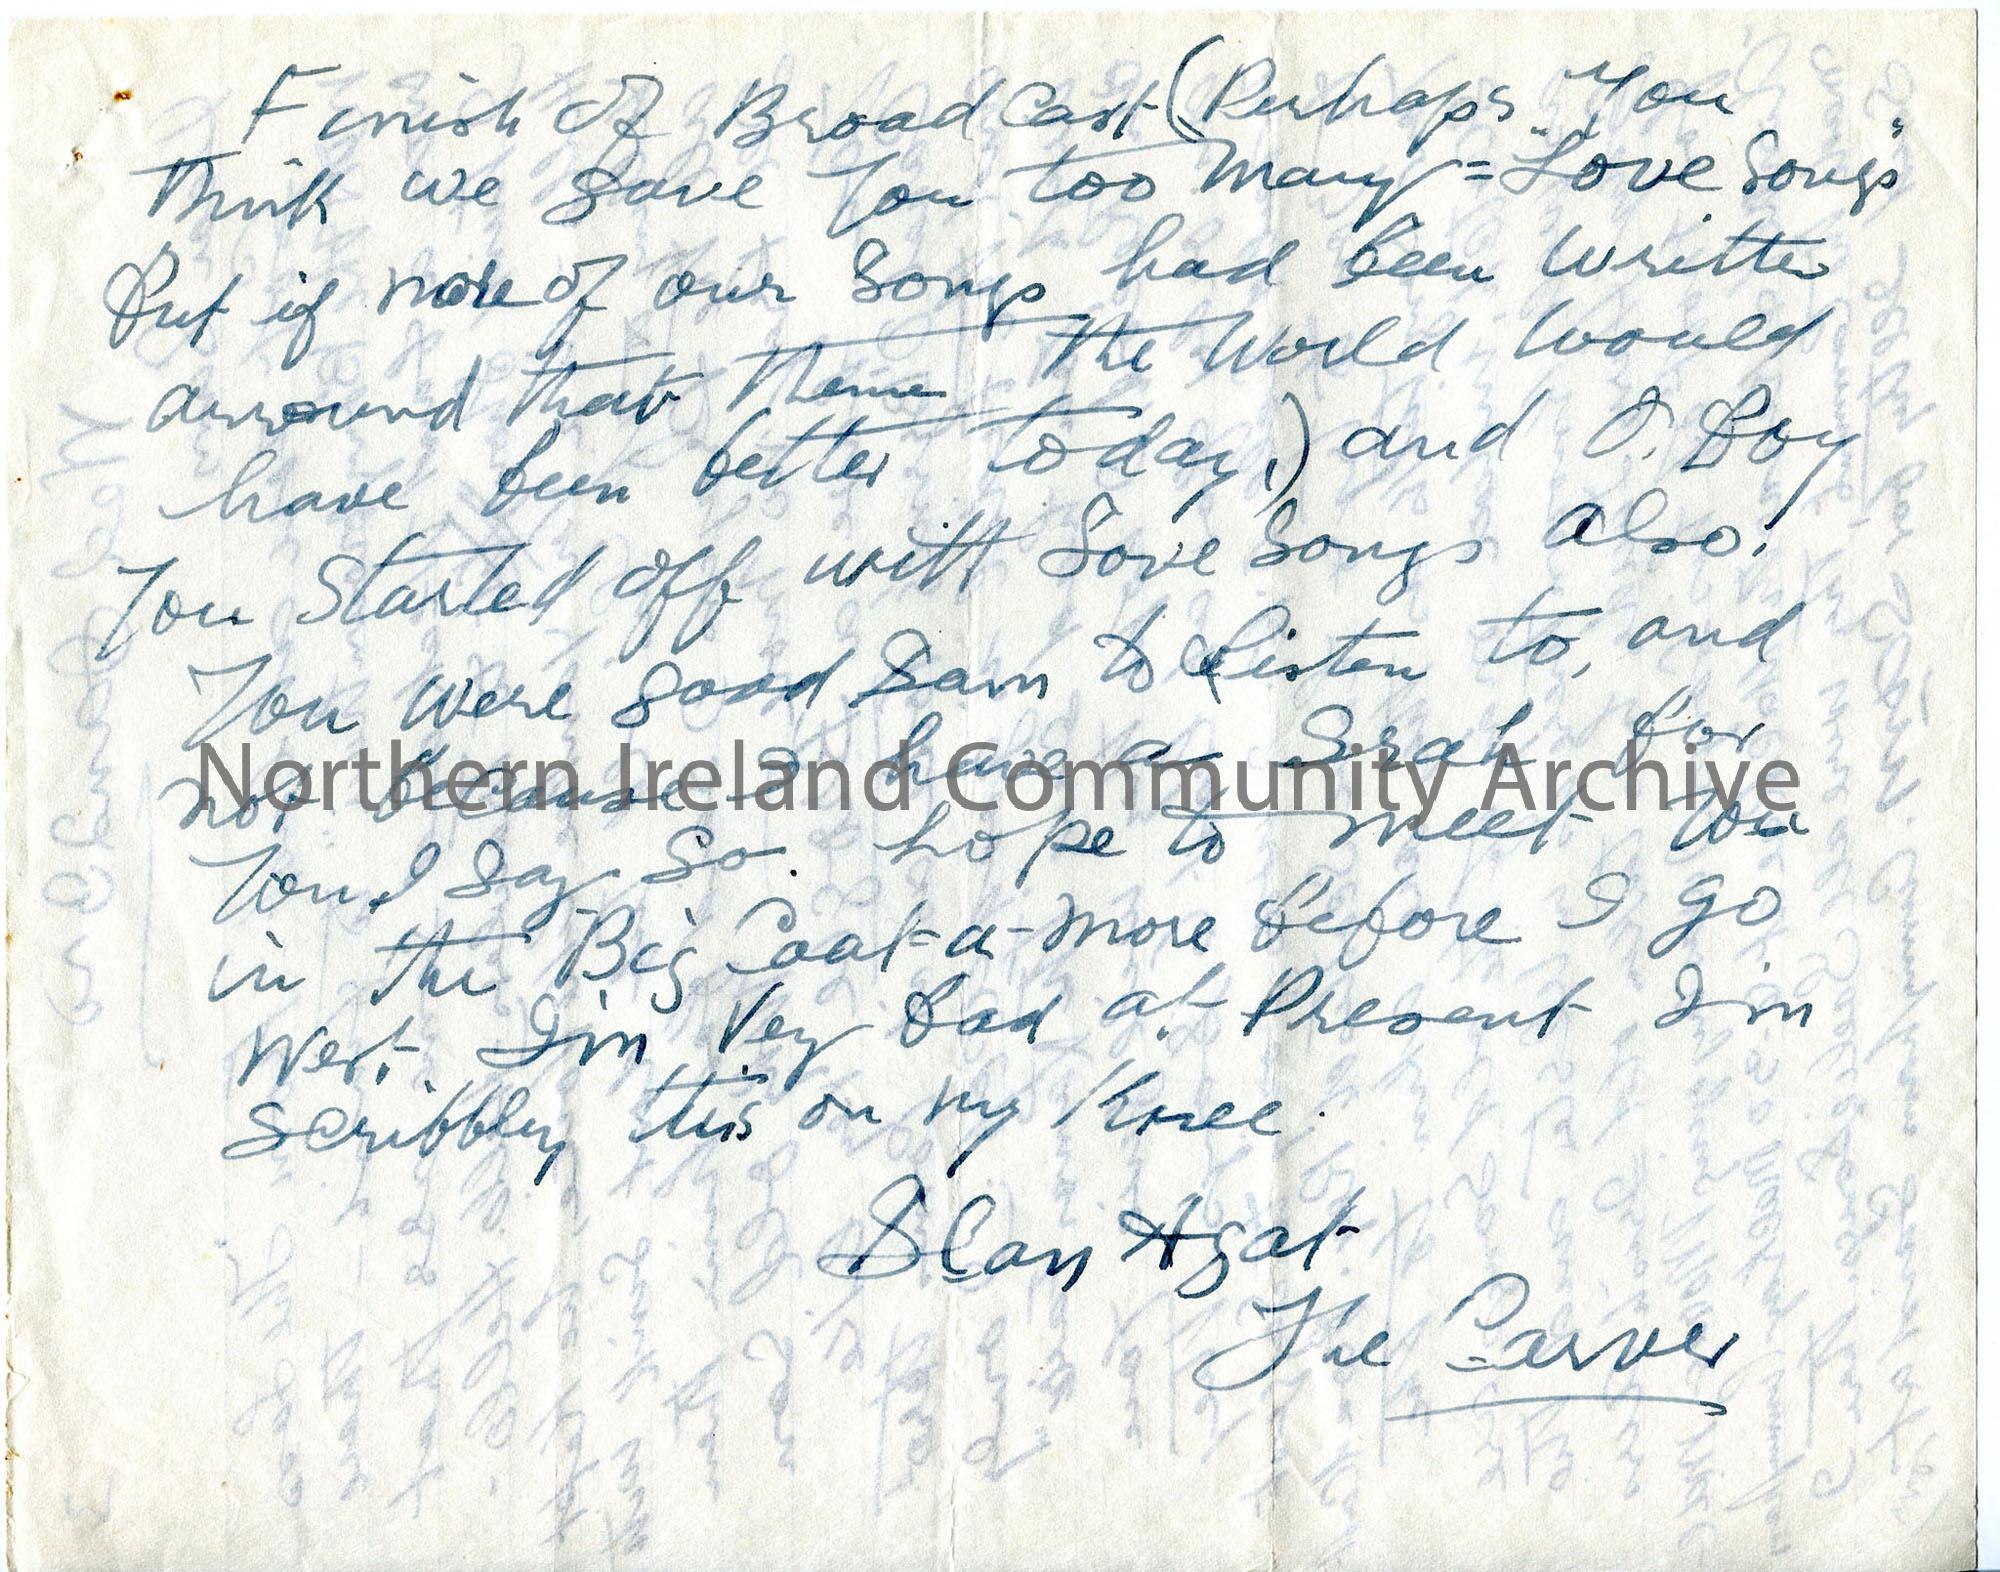 Finish of BroadCast (Perhaps You
Think we gave You too many = "Love Songs"
But if more of our Songs had been written
arround that Theme The World would
have been better today.) and O. Boy
You Started off with Love Songs also!
You were good Sam to Listen to, and
not because I have a Grah for
You I Say So. hope to meet You
in the Big Coat-a-more before I go
West. I'm Vey bad at Present I'm
Scribbley this on my Knee.
Slan Agat
The Carver
Northern Ireland Community Archive